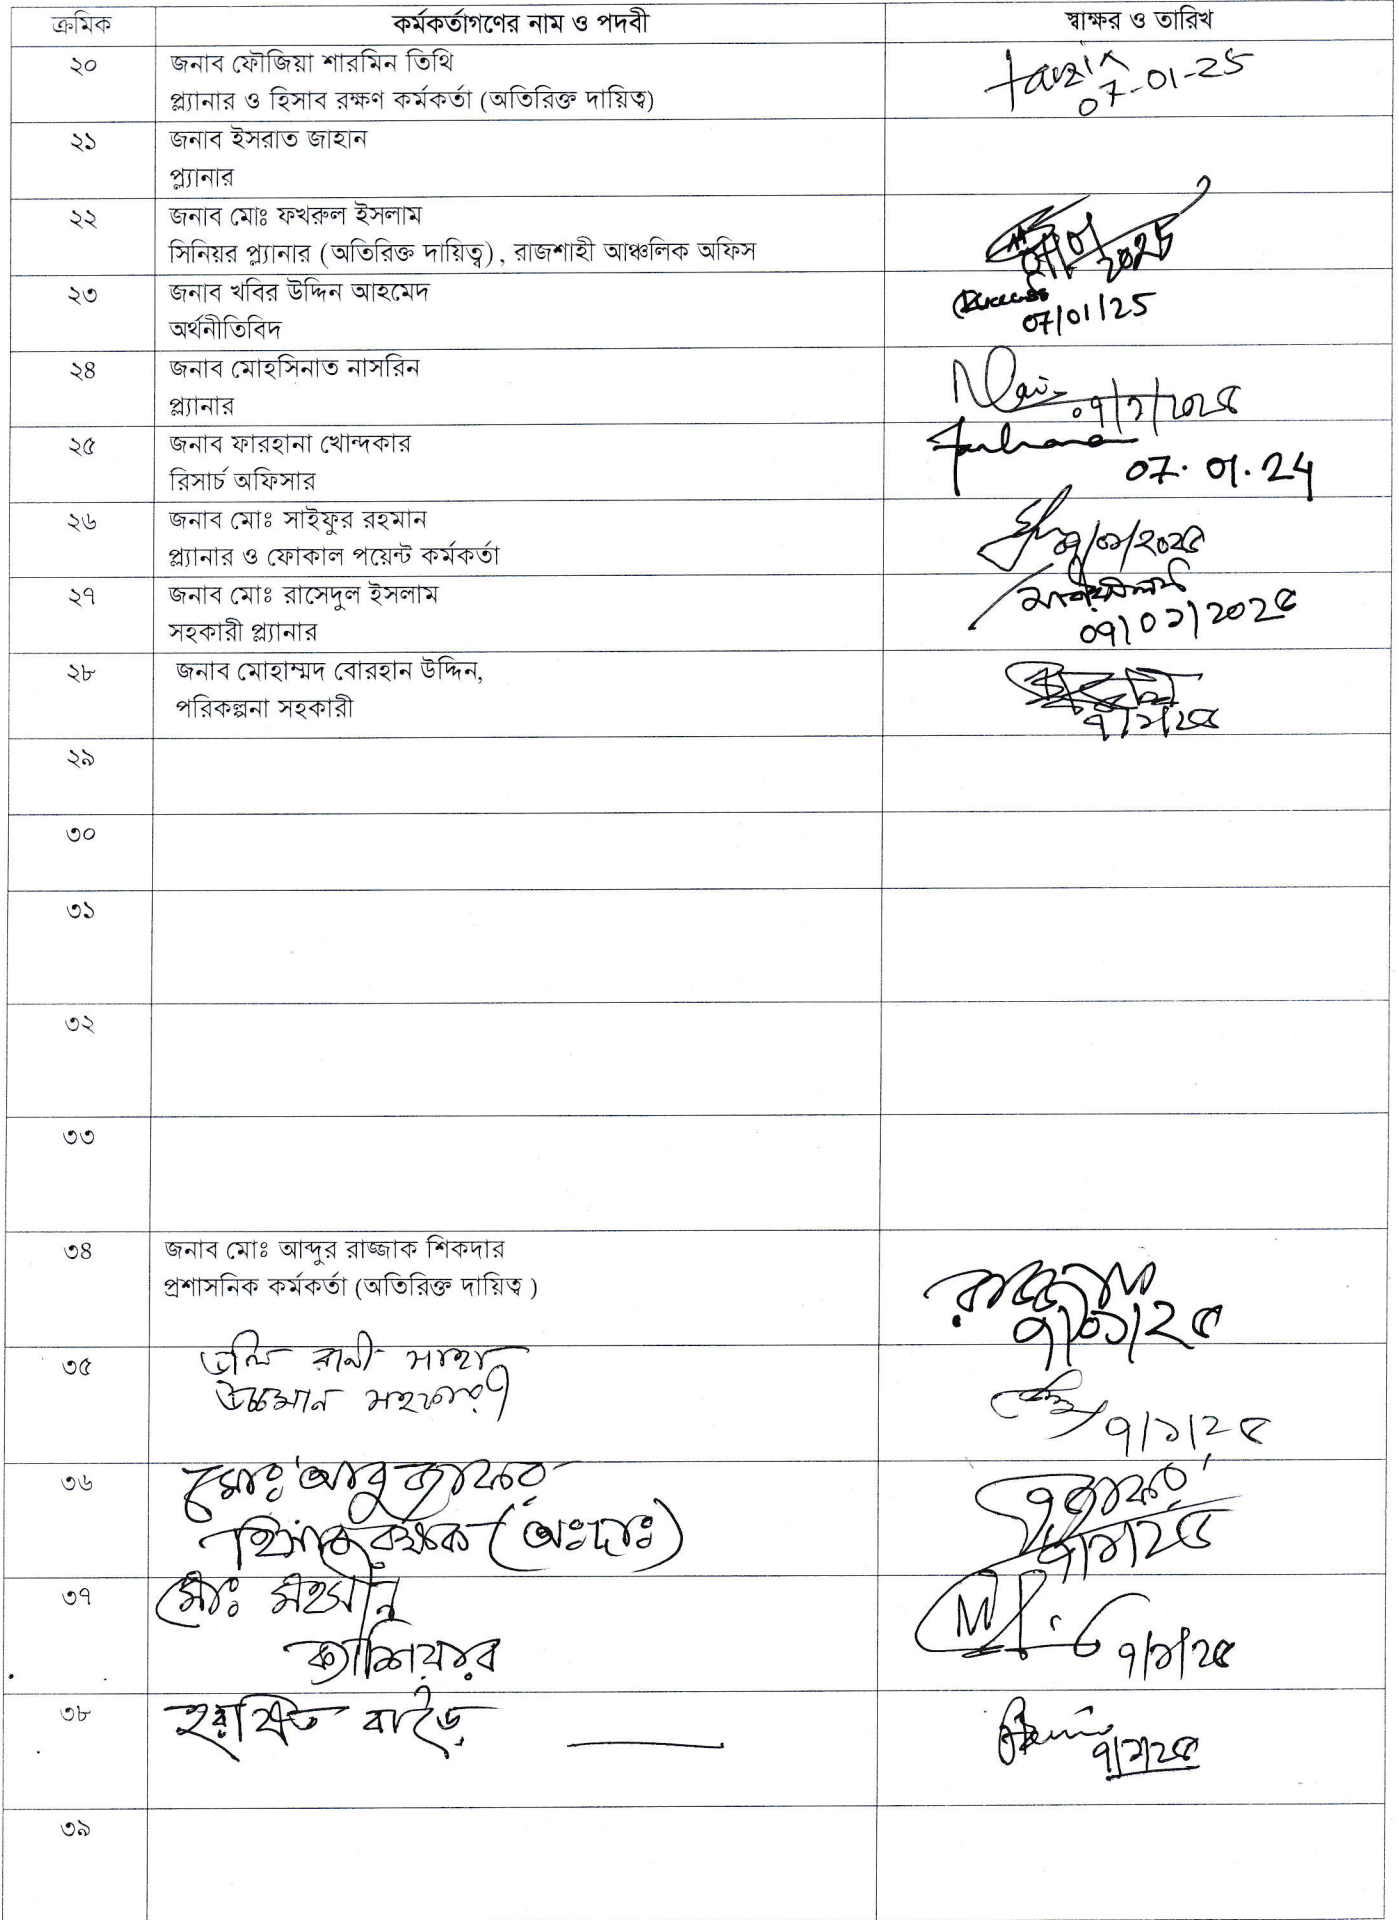 ক্রমিক কর্মকর্তাগণের নাম ও পদবী স্বাক্ষর ও তারিখ
২০ জনাব ফৌজিয়া শারমিন তিথি
প্ল্যানার ও হিসাব রক্ষণ কর্মকর্তা (অতিরিক্ত দায়িত্ব)
07-01-25
২১ জনাব ইসরাত জাহান
প্ল্যানার
২২ জনাব মোঃ ফখরুল ইসলাম
সিনিয়র প্ল্যানার (অতিরিক্ত দায়িত্ব), রাজশাহী আঞ্চলিক অফিস
২৩ জনাব খবির উদ্দিন আহমেদ
অর্থনীতিবিদ
07/01/25
২৪ জনাব মোহসিনাত নাসরিন
প্ল্যানার
০৭/১/২০২৫
২৫ জনাব ফারহানা খোন্দকার
রিসার্চ অফিসার
Farhana
07.01.24
২৬ জনাব মোঃ সাইফুর রহমান
প্ল্যানার ও ফোকাল পয়েন্ট কর্মকর্তা
০৭/০১/২০২৫
২৭ জনাব মোঃ রাসেদুল ইসলাম
সহকারী প্ল্যানার
০৭/০১/২০২৫
২৮ জনাব মোহাম্মদ বোরহান উদ্দিন,
পরিকল্পনা সহকারী
৭/১/২৫
২৯
৩০
৩১
৩২
৩৩
৩৪ জনাব মোঃ আব্দুর রাজ্জাক শিকদার
প্রশাসনিক কর্মকর্তা (অতিরিক্ত দায়িত্ব )
রাজ্জাক
৭/০১/২৫
৩৫ ডলি রানী সাহা
উচ্চমান সহকারী
৭/১/২৫
৩৬ মোঃ আবু জাফর
হিসাব রক্ষক (অঃদাঃ)
জাফর
৭/১/২৫
৩৭ মোঃ মহসীন
ক্যাশিয়ার
৭/১/২৫
৩৮ হরষিত বাড়ৈ
৭/১/২৫
৩৯